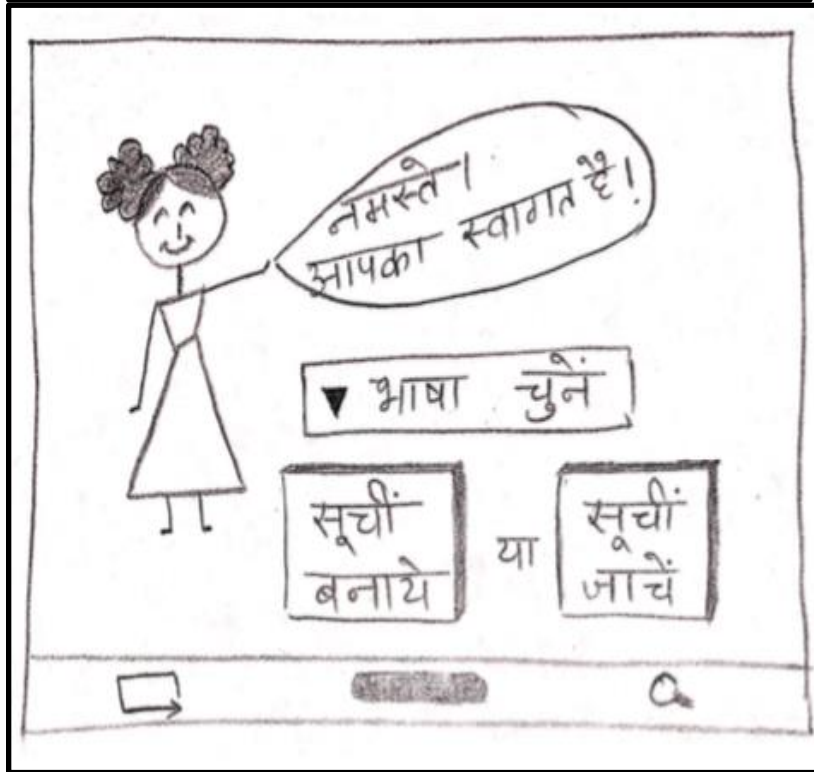 नमस्ते।
आपका स्वागत है!
▼ भाषा चुनें
सूचीं
बनाये
या
सूचीं
जाचें